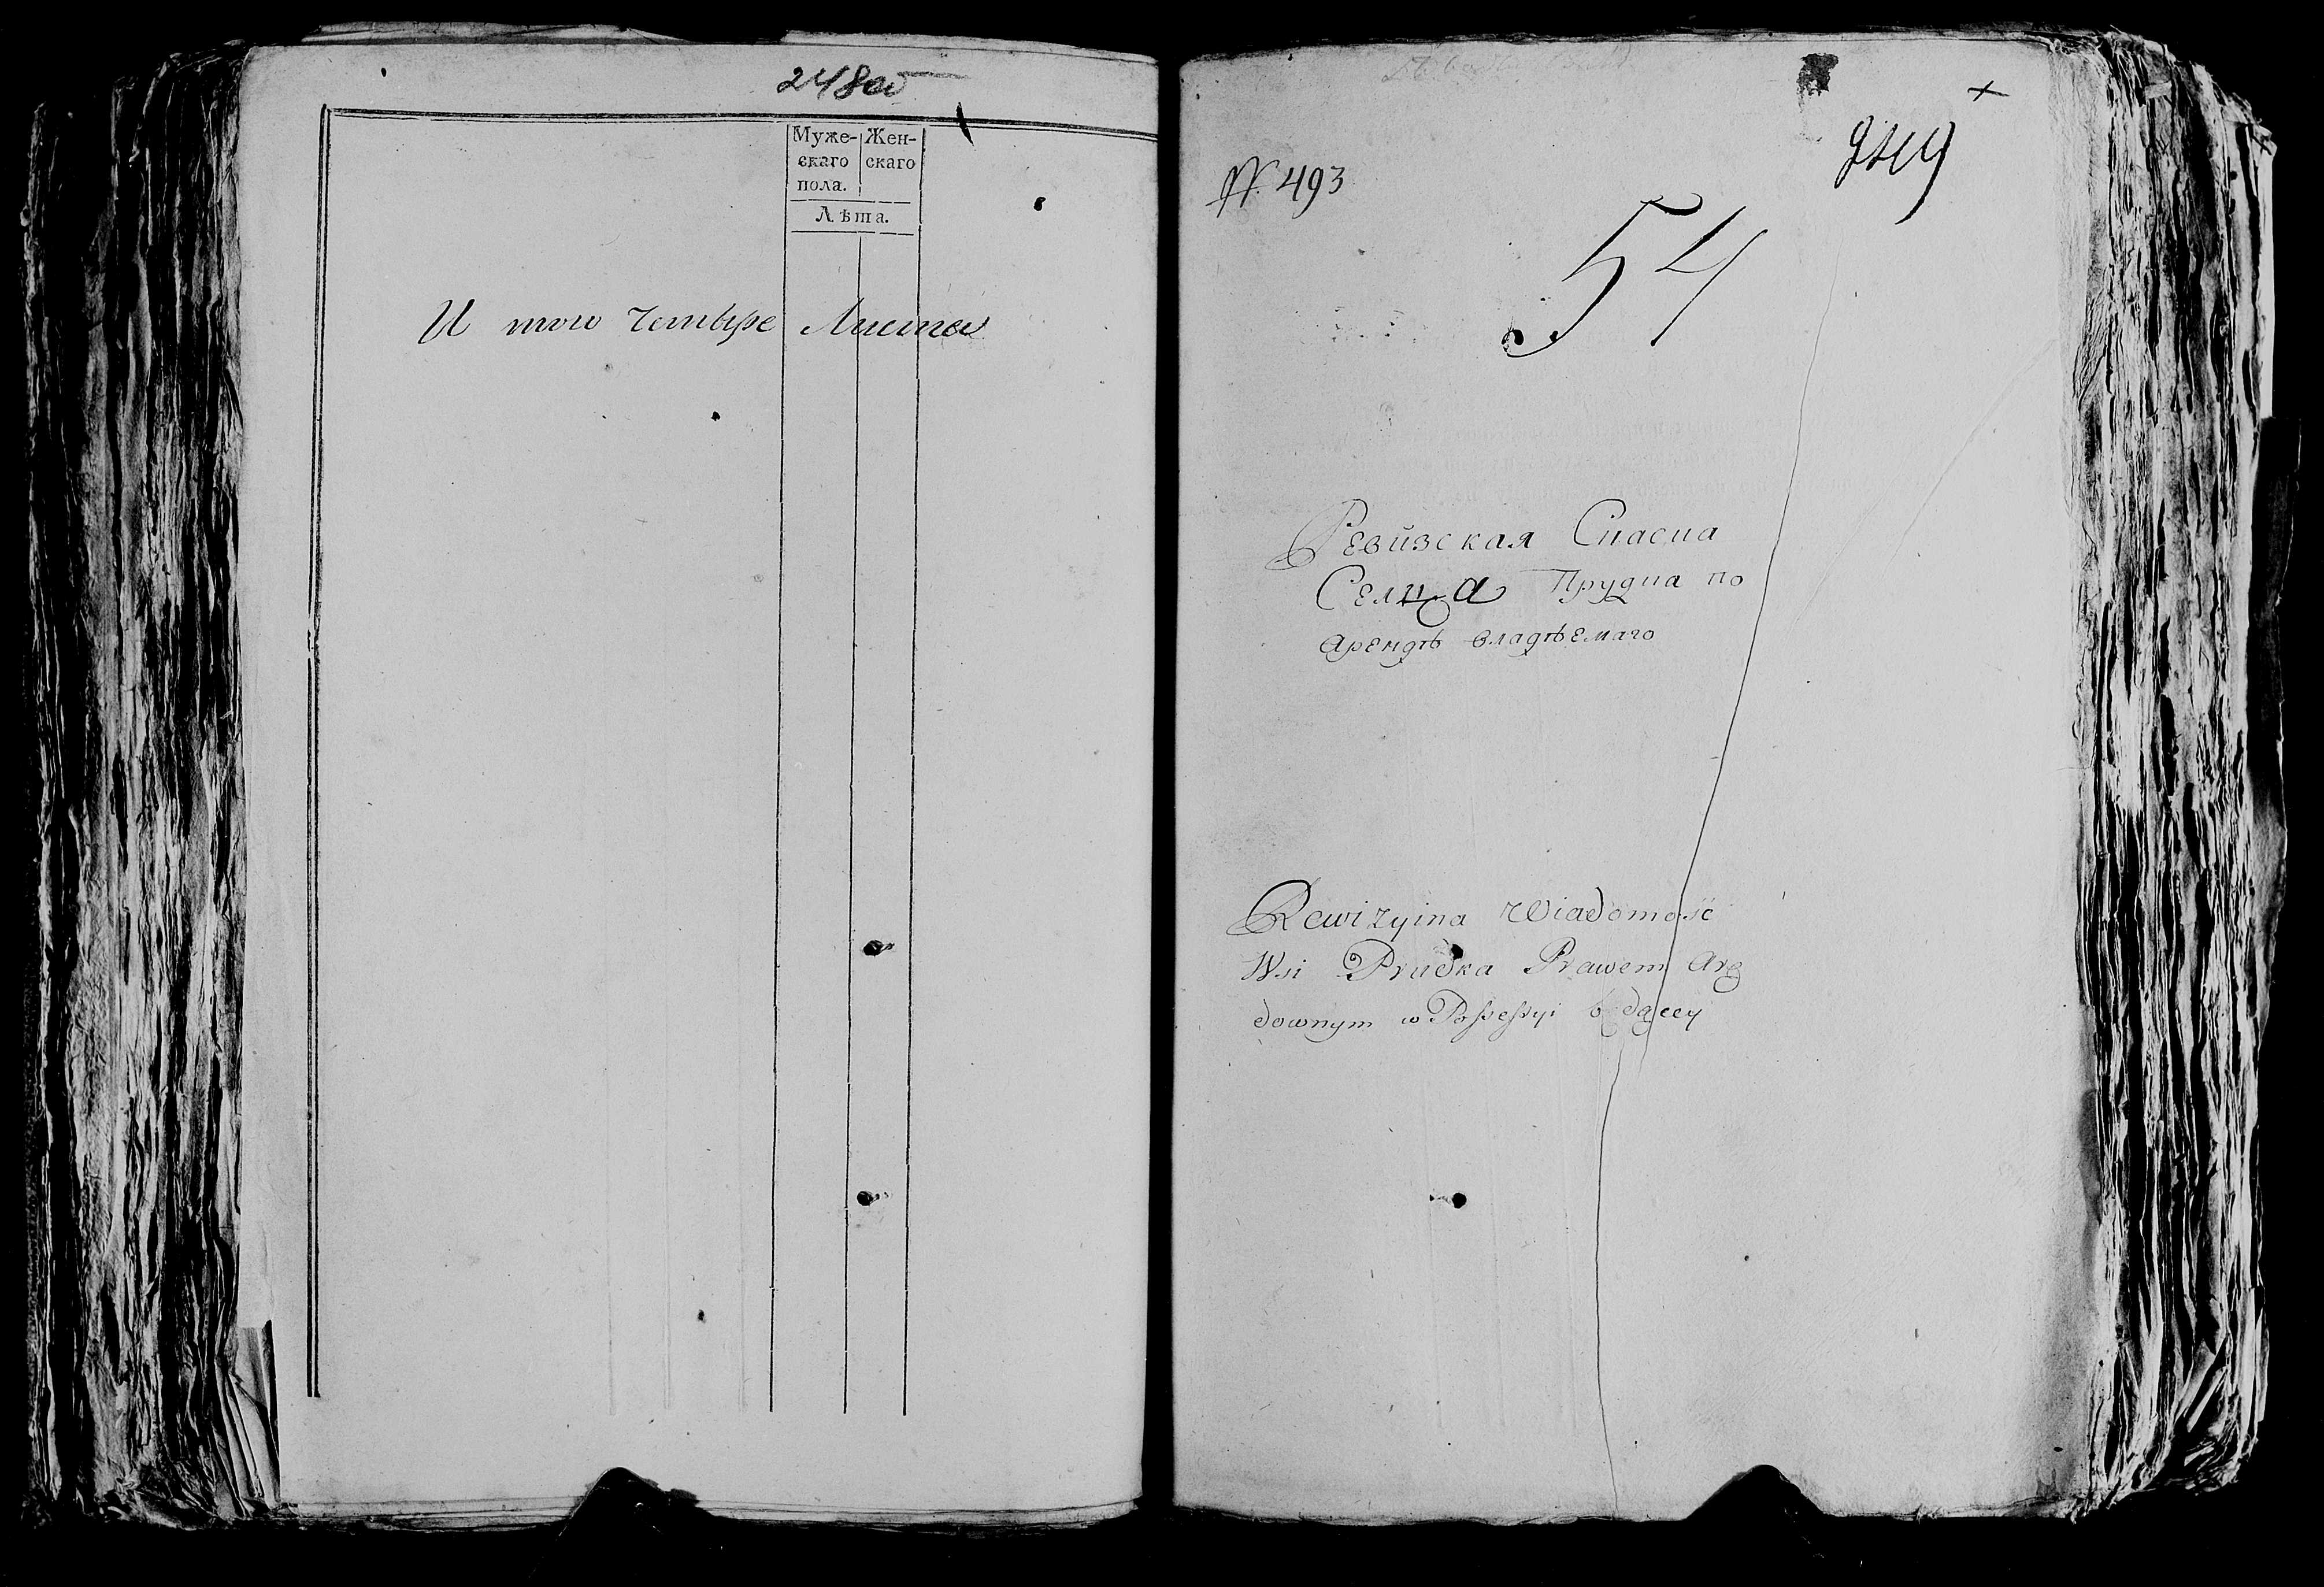 248об
Муже- Жен-
скаго скаго
пола.
Лѣта.
И того четыре Листа
№ 493
249
54
Ревизская Спасиа
Селца Прудна по
арендѣ владѣемаго
Rewizyina Wiadomość
Wsi Prudka Prawem Arę
downym w Possessyi będącey